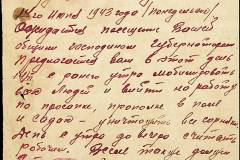 14го Июня 1943 года (Понедельник)
Ожидается посещение Вашей
общины господином Губернатором
Предлогается Вам в этот день
с ранго утра мобилизовать
всех Людей и выйти на работу
по прополки, прополке в поле
и садога - уничтожить все сорняки
День с утра до вечера считать
рабочим. После такую данную